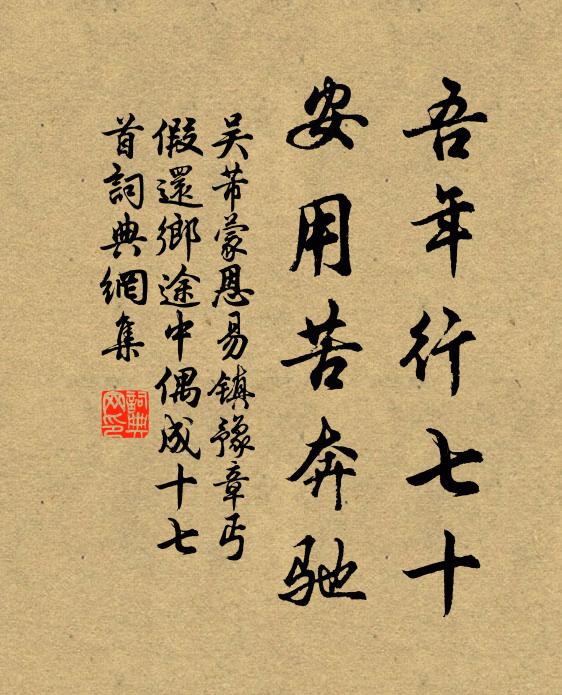 吾年行七十
安用苦奔馳
吴芾蒙恩易镇豫章丐
假還鄉途中偶成十七
首詞典網集
詞典
网印